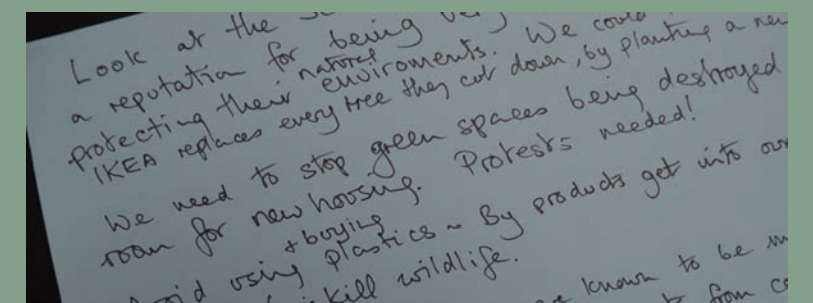 Look at the
a reputation for being very
natural
protecting their enviroments. We could
IKEA replaces every tree they cut down, by planting a new
We need to stop green spaces being destroyed
room for new housing. Protests needed!
+ buying
using plastics ~ By products get into our
kill wildlife.
known to be
from